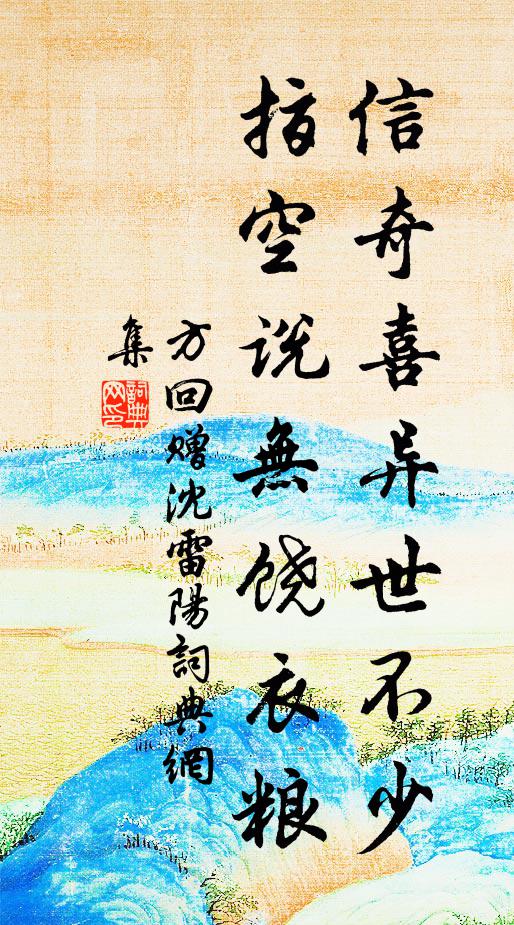 信奇喜异世不少
指空说無饶衣粮
方回赠沈雷陽詞典網
集
詞典网印